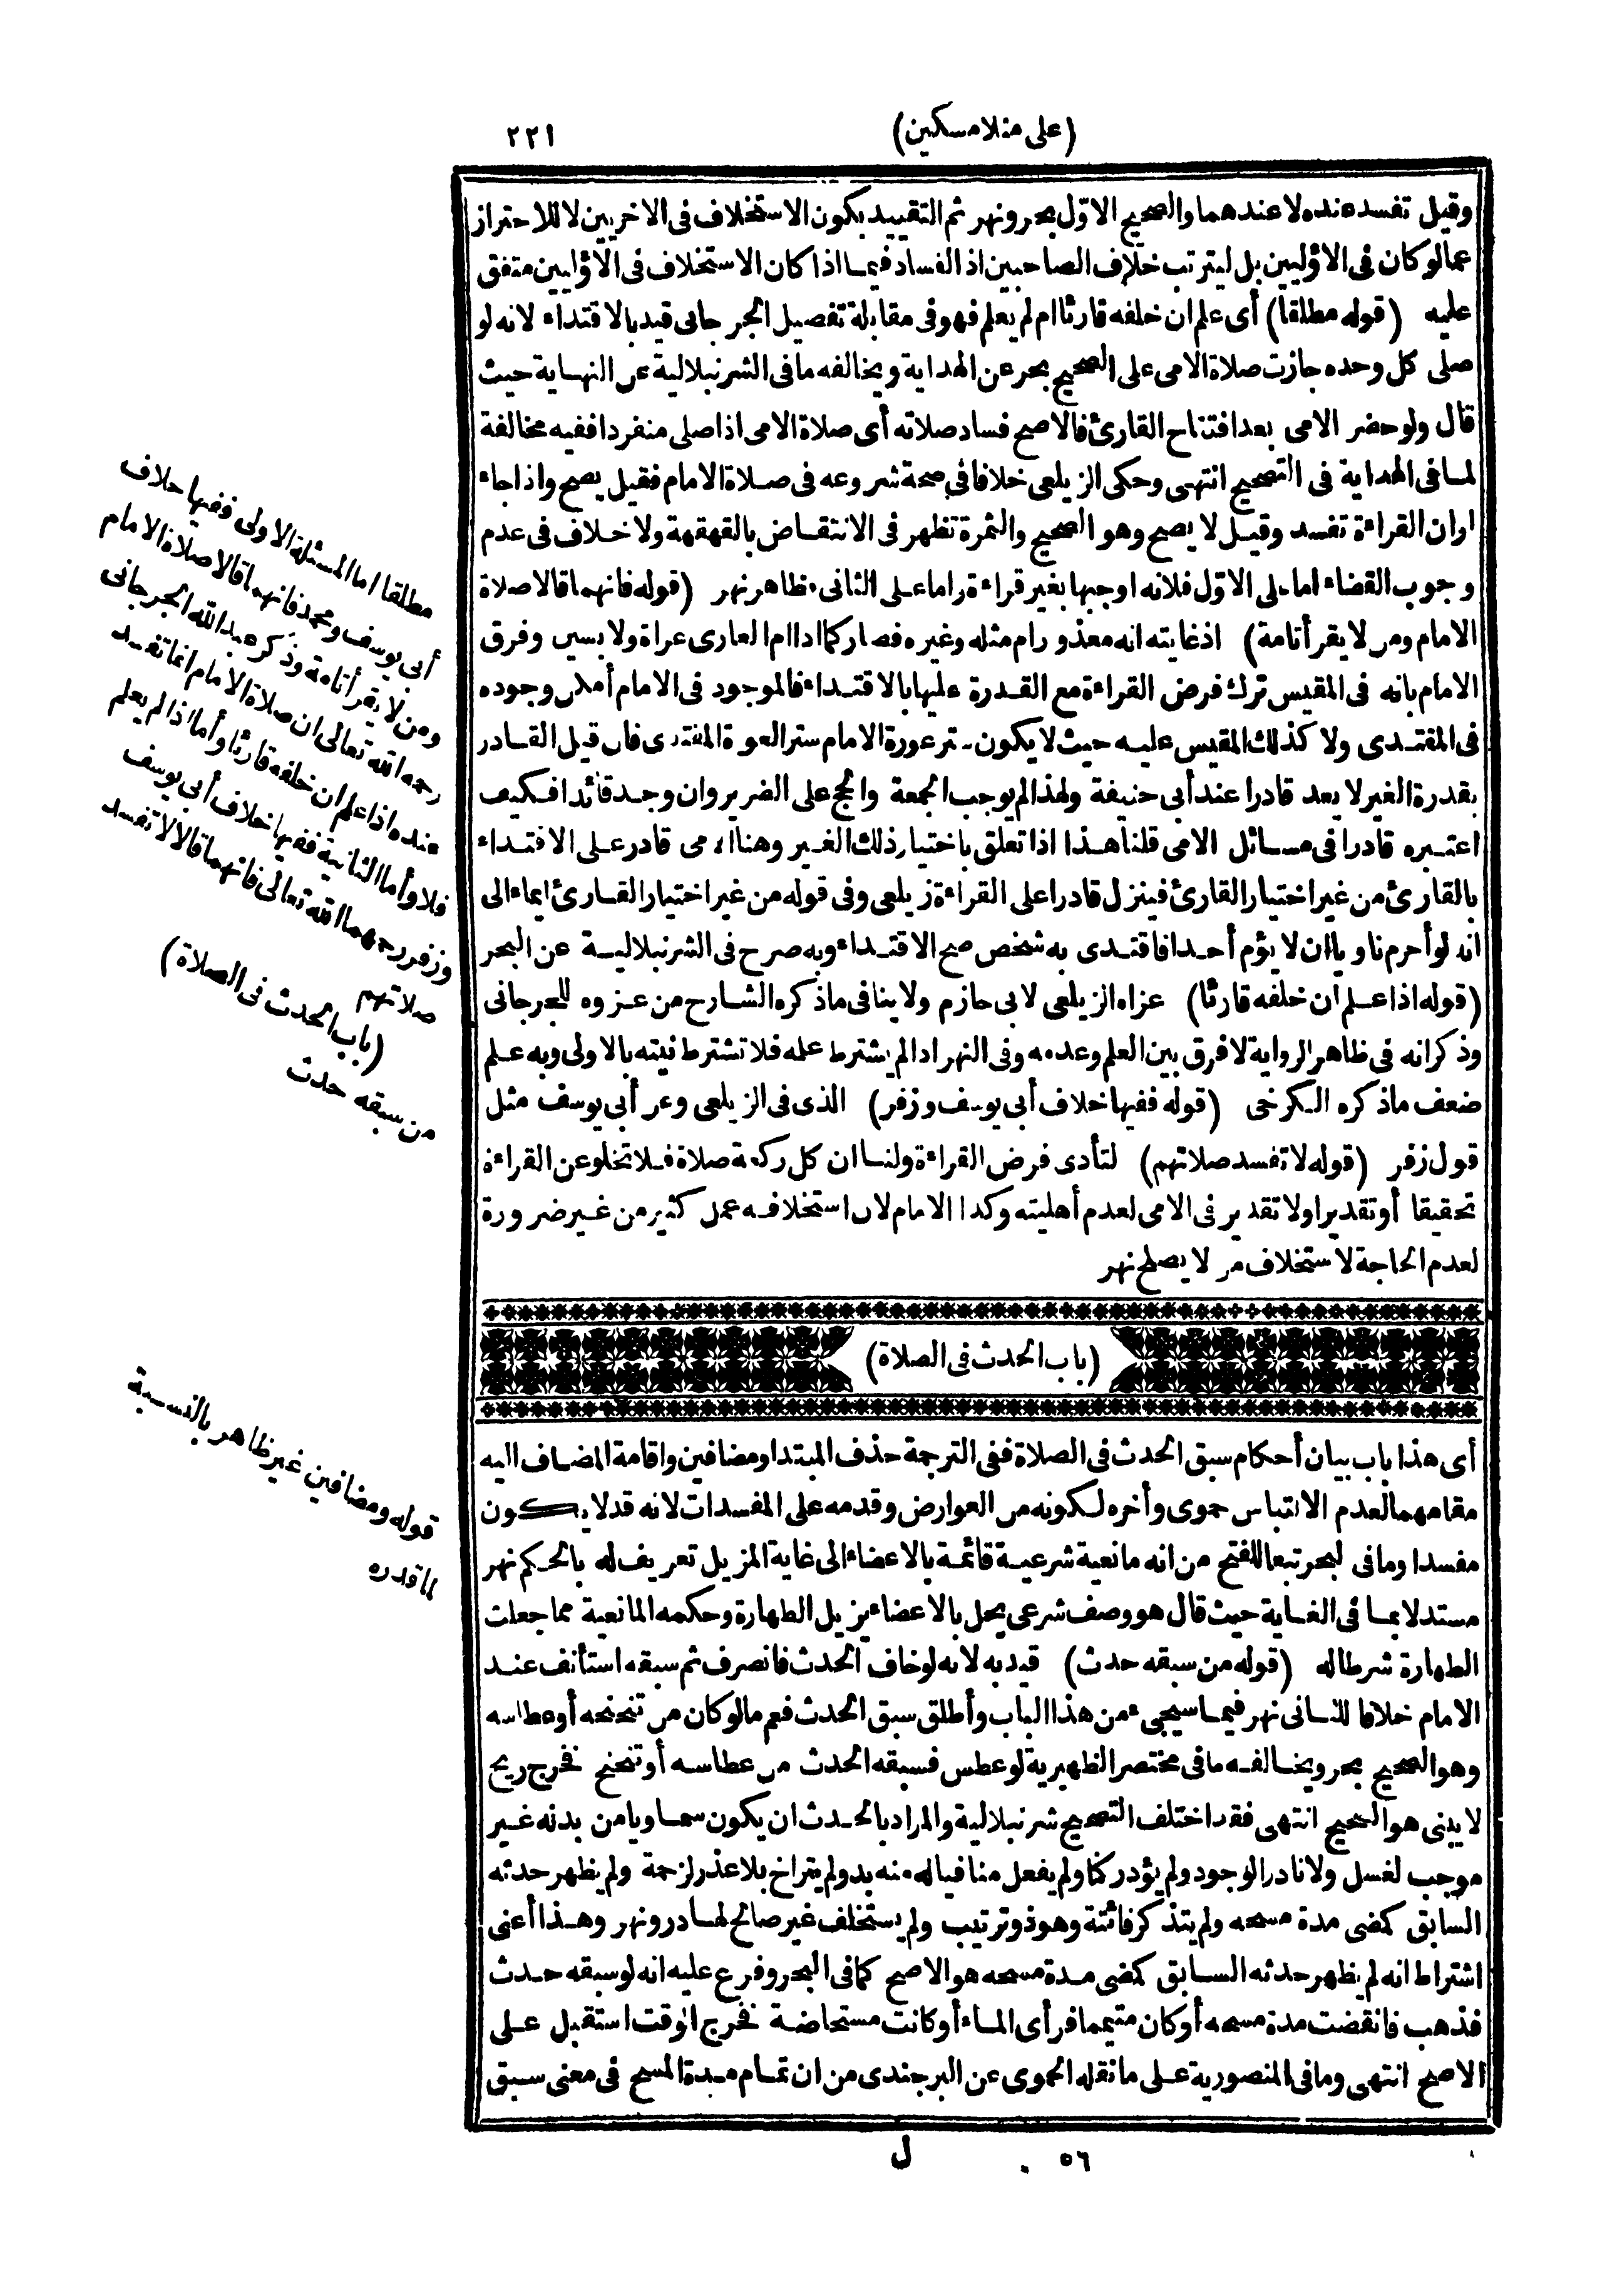 (على منلا مسكين)
٢٢١
وقيل تفسد عنده لا عندهما والصحيح الاوّل بحر ونهر ثم التقييد بكون الاستخلاف فى الاخريين لا للاحتراز
عمالو كان فى الاوليين بل ليترتب خلاف الصاحبين اذ الفساد فيما اذا كان الاستخلاف فى الاوليين متفق
عليه (قوله مطلقا) أى علم ان خلفه قارئا ام لم يعلم فهو فى مقابلة تفصيل الجرجانى قيد بالاقتداء لانه لو
صلى كل وحده جازت صلاة الامى على الصحيح بحر عن الهداية ويخالفه ما فى الشرنبلالية عن النهاية حيث
قال ولو حضر الامى بعد افتتاح القارئ فالاصح فساد صلاته أى صلاة الامى اذا صلى منفردا ففيه مخالفة
لما فى الهداية فى التصحيح انتهى وحكى الزيلعى خلافا فى صحة شروعه فى صلاة الامام فقيل يصح واذا جاء
اوان القراءة تفسد وقيل لا يصح وهو الصحيح والثمرة تظهر فى الانتقاض بالقهقهة ولا خلاف فى عدم
وجوب القضاء اما على الاوّل فلانه اوجبها بغير قراءة واما على الثانى فظاهر نهر (قوله فانهما قالا صلاة
الامام ومن لا يقرأ تامة) اذ غايته انه معذور ام مثله وغيره فصار كما اذا ام العارى عراة ولابسين وفرق
الامام بانه فى المقيس ترك فرض القراءة مع القدرة عليها بالاقتداء فالموجود فى الامام أمكن وجوده
فى المقتدى ولا كذلك المقيس عليه حيث لا يكون ستر عورة الامام ستر العورة المقتدى فان قيل القادر
بقدرة الغير لا يعد قادرا عند أبى حنيفة ولهذا لم يوجب الجمعة والحج على الضرير وان وجد قائدا فكيف
اعتبره قادرا فى مسائل الامى قلنا هذا اذا تعلق باختيار ذلك الغير وهنا الامى قادر على الاقتداء
بالقارئ من غير اختيار القارئ فينزل قادرا على القراءة زيلعى وفى قوله من غير اختيار القارئ ايماء الى
انه لو أحرم ناويا ان لا يؤم أحدا فاقتدى به شخص صح الاقتداء وبه صرح فى الشرنبلالية عن البحر
(قوله اذا علم ان خلفه قارئا) عزاه الزيلعى لابى حازم ولا ينافى ما ذكره الشارح من عزوه للجرجانى
وذكر انه فى ظاهر الرواية لا فرق بين العلم وعدمه وفى النهر اذ لم يشترط علمه فلا تشترط نيته بالاولى وبه علم
ضعف ما ذكره الكرخى (قوله ففيها خلاف أبى يوسف وزفر) الذى فى الزيلعى وعن أبى يوسف مثل
قول زفر (قوله لا تفسد صلاتهم) لتأدى فرض القراءة ولنا ان كل ركعة صلاة فلا تخلو عن القراءة
تحقيقا أو تقديرا ولا تقدير فى الامى لعدم أهليته وكذا الامام لان استخلافه عمل كثير من غير ضرورة
لعدم الحاجة لاستخلاف من لا يصلح نهر
(باب الحدث فى الصلاة)
أى هذا باب بيان أحكام سبق الحدث فى الصلاة ففى الترجمة حذف المبتدا ومضافين واقامة المضاف اليه
مقامهما لعدم الالتباس حموى وأخره لكونه من العوارض وقدمه على المفسدات لانه قد لا يكون
مفسدا وما فى البحر تبعا للفتح من انه مانعية شرعية قائمة بالاعضاء الى غاية المزيل تعريف له بالحكم نهر
مستدلا بما فى الغاية حيث قال هو وصف شرعى يحل بالاعضاء يزيل الطهارة وحكمه المانعية مما جعلت
الطهارة شرطا له (قوله من سبقه حدث) قيد به لانه لو خاف الحدث فانصرف ثم سبقه استأنف عند
الامام خلافا للثانى نهر فيما سيجىء من هذا الباب وأطلق سبق الحدث فعم ما لو كان من تنحنحه أو عطاسه
وهو الصحيح بحر ويخالفه ما فى مختصر الظهيرية لو عطس فسبقه الحدث من عطاسه أو تنحنح فخرج ريح
لا يبنى هو الصحيح انتهى فقد اختلف التصحيح شرنبلالية والمراد بالحدث ان يكون سماويا من بدنه غير
موجب لغسل ولا نادر الوجود ولم يؤد ركنا ولم يفعل منافيا له منه بد ولم يتراخ بلا عذر لزحمة ولم يظهر حدثه
السابق كمضى مدة مسحه ولم يتذكر فائتة وهو ذو ترتيب ولم يستخلف غير صالح لها در ونهر وهذا أعنى
اشتراط انه لم يظهر حدثه السابق كمضى مدة مسحه هو الاصح كما فى البحر وفرع عليه انه لو سبقه حدث
فذهب فانقضت مدة مسحه أو كان متيمما فرأى الماء أو كانت مستحاضة فخرج الوقت استقبل على
الاصح انتهى وما فى المنصورية على ما نقله الحموى عن البرجندى من ان تمام مدة المسح فى معنى سبق
٥٦
ل
مطلقا اما المسئلة الاولى ففيها خلاف
أبى يوسف ومحمد فانهما قالا صلاة الامام
ومن لا يقرأ تامة وذكر عبد الله الجرجانى
رحمه الله تعالى ان صلاة الامام انما تفسد
عنده اذا علم ان خلفه قارئا وأما اذا لم يعلم
فلا وأما الثانية ففيها خلاف أبى يوسف
وزفر رحمهما الله تعالى فانهما قالا لا تفسد
صلاتهم
(باب الحدث فى الصلاة)
من سبقه حدث
قوله ومضافين غير ظاهر بالنسبة
لما قدره